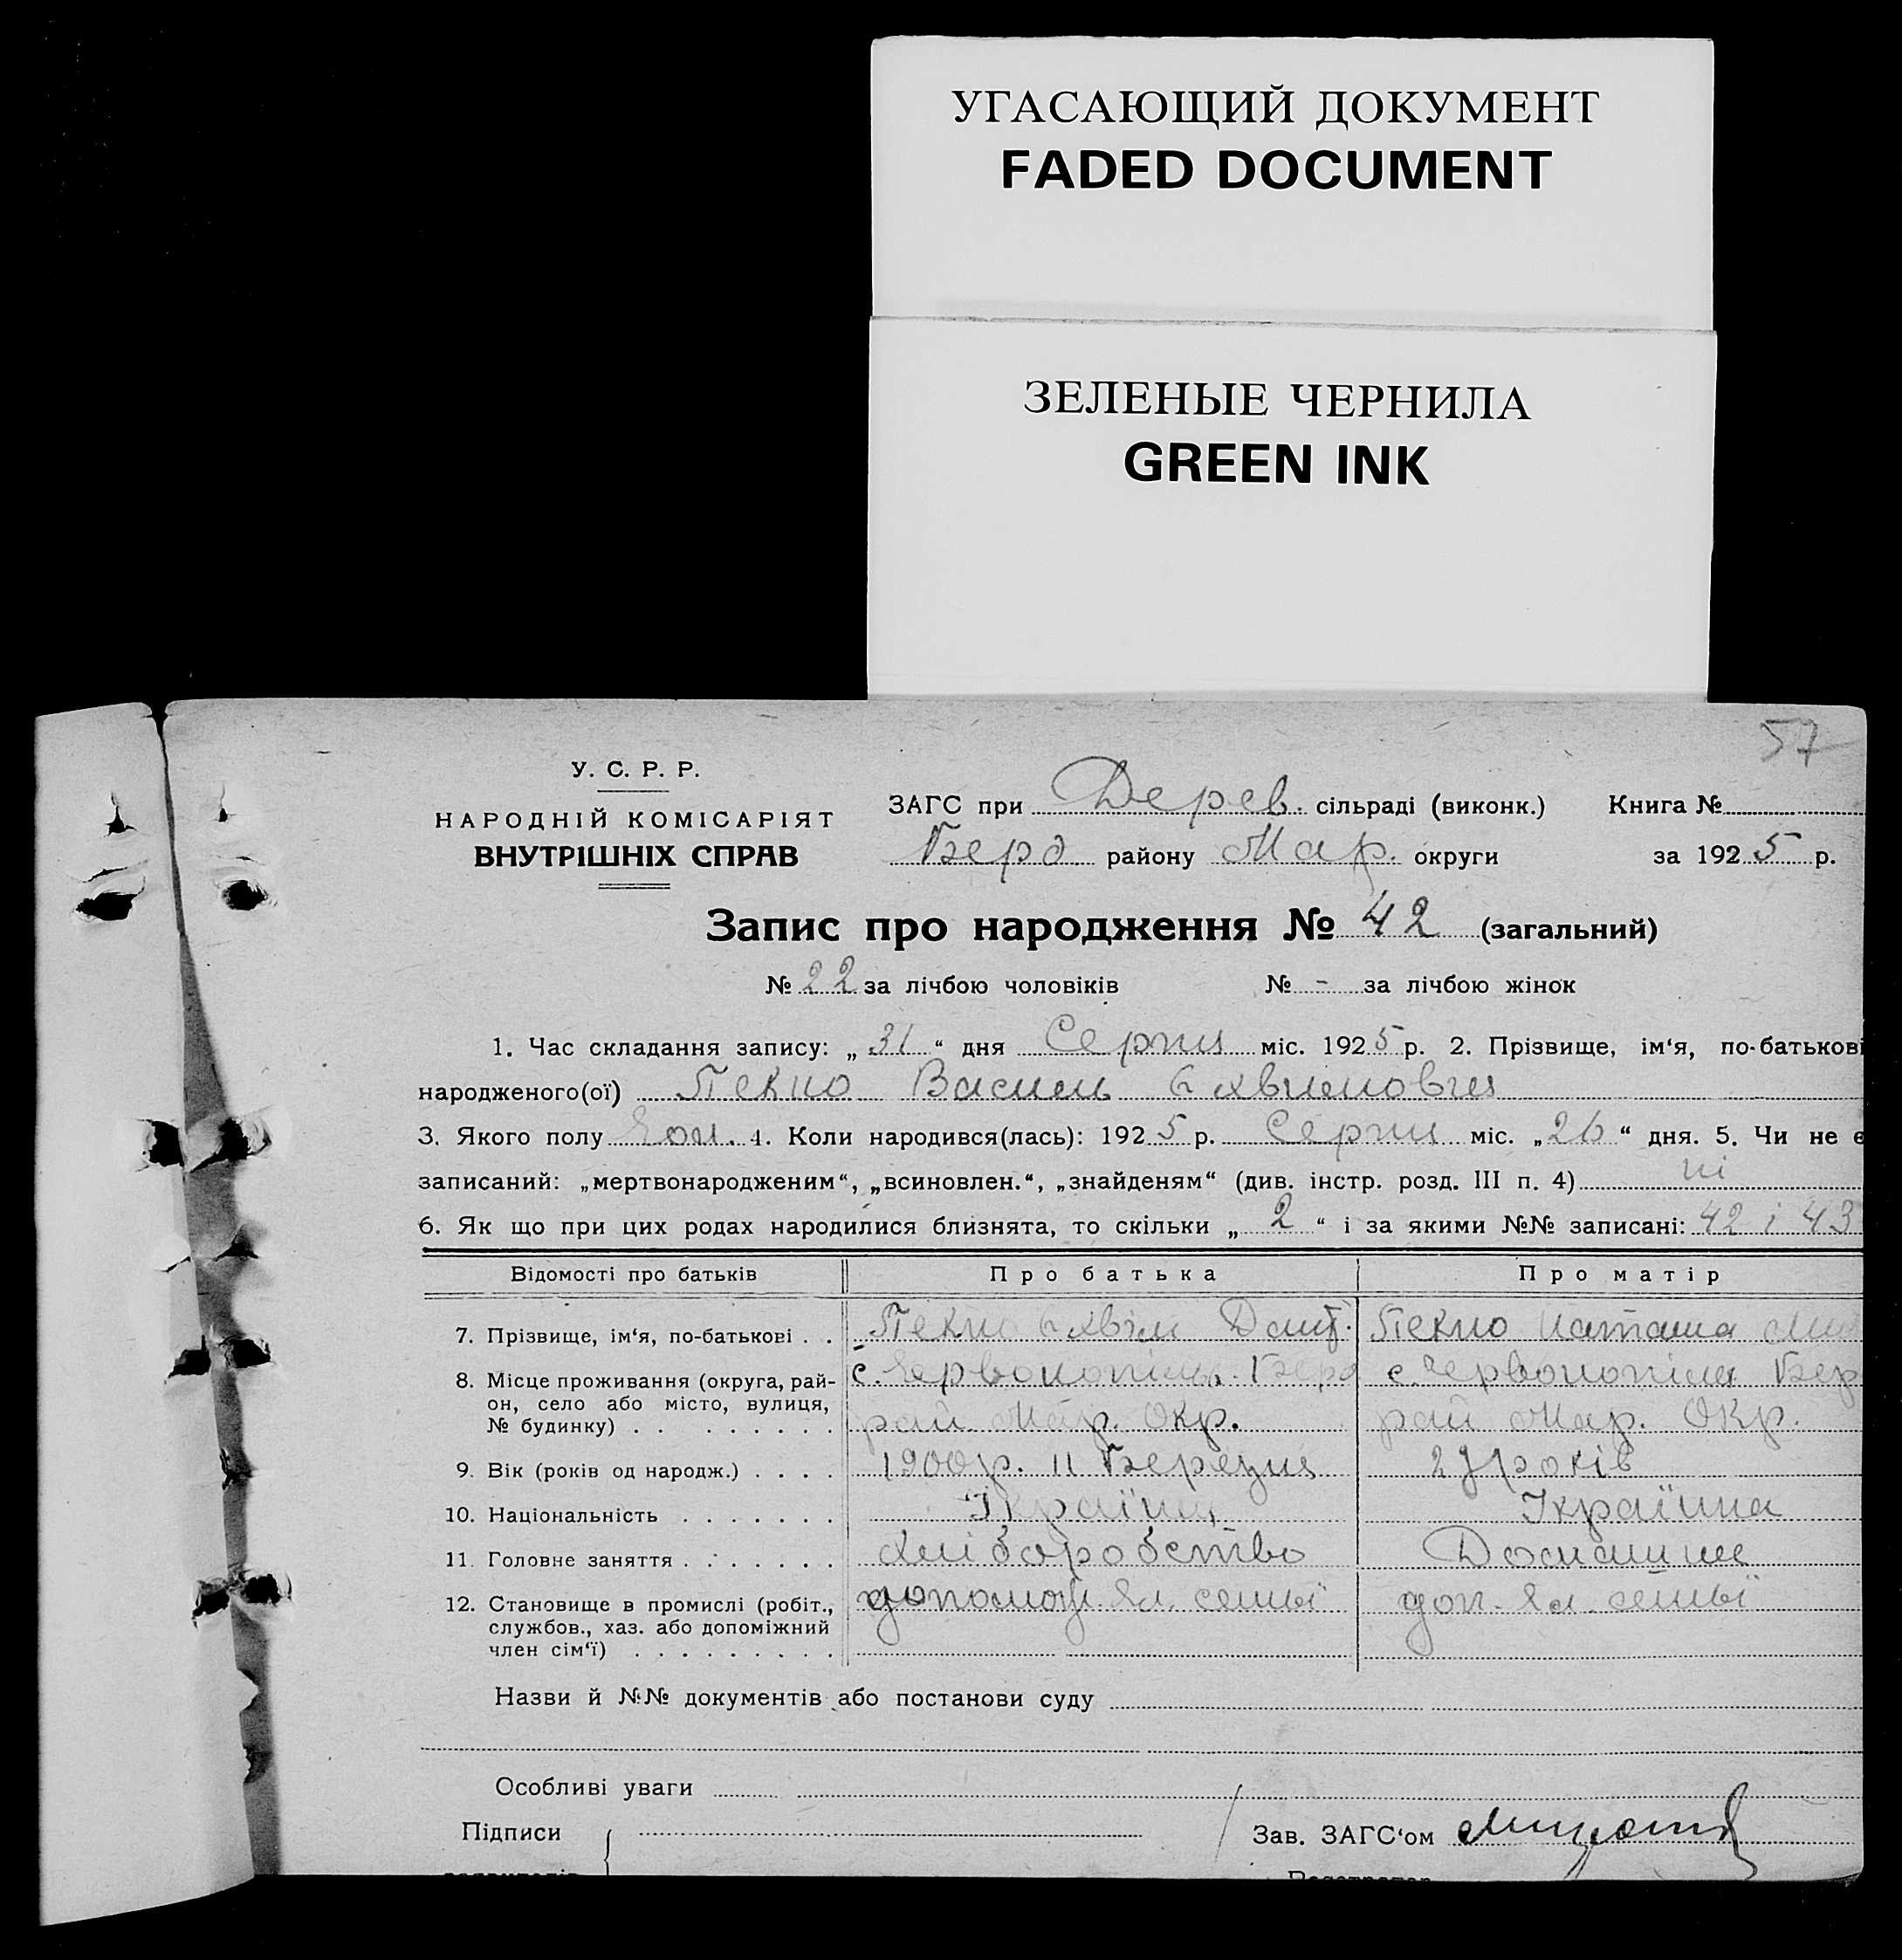 УГАСАЮЩИЙ ДОКУМЕНТ
FADED DOCUMENT
ЗЕЛЕНЫЕ ЧЕРНИЛА
GREEN INK
57
У. С. Р. Р.
НАРОДНІЙ КОМІСАРІЯТ
ВНУТРІШНІХ СПРАВ
ЗАГС при Дерев. сільраді (виконк.) Книга №
Берд району Мар. округи за 1925 р.
Запис про народження № 42 (загальний)
№ 22 за лічбою чоловіків № - за лічбою жінок
1. Час складання запису: „ 31 “ дня Серпня міс. 1925 р. 2. Прізвище, ім‘я, по-батькові
народженого(ої) Пекно Василь
3. Якого полу 4. Коли народився(лась): 1925 р. Серпня міс. „ 26 “ дня. 5. Чи не є
записаний: „мертвонародженим“, „всиновлен.“, „знайденям“ (див. інстр. розд. III п. 4) ні
6. Як що при цих родах народилися близнята, то скільки „ 2 “ і за якими №№ записані: 42 і 43
Відомості про батьків Про батька Про матір
7. Прізвище, ім‘я, по-батькові . . Пекно Пекно Наташа
8. Місце проживання (округа, рай- с. Червонопілля Берд с. Червонопілля Бер
он, село або місто, вулиця,
№ будинку) . . . . . . . . рай. Мар. Окр. рай Мар. Окр.
9. Вік (років од народж.) . . . . 1900 р. 11 Березня років
10. Національність . . . . . . . Україна
11. Головне заняття . . . . . . . хліборобство Домашнє
12. Становище в промислі (робіт., семьї доп. семьї
службов., хаз. або допоміжний
член сім‘ї) . . . . . . . . .
Назви й №№ документів або постанови суду
Особливі уваги
Підписи Зав. ЗАГС‘ом